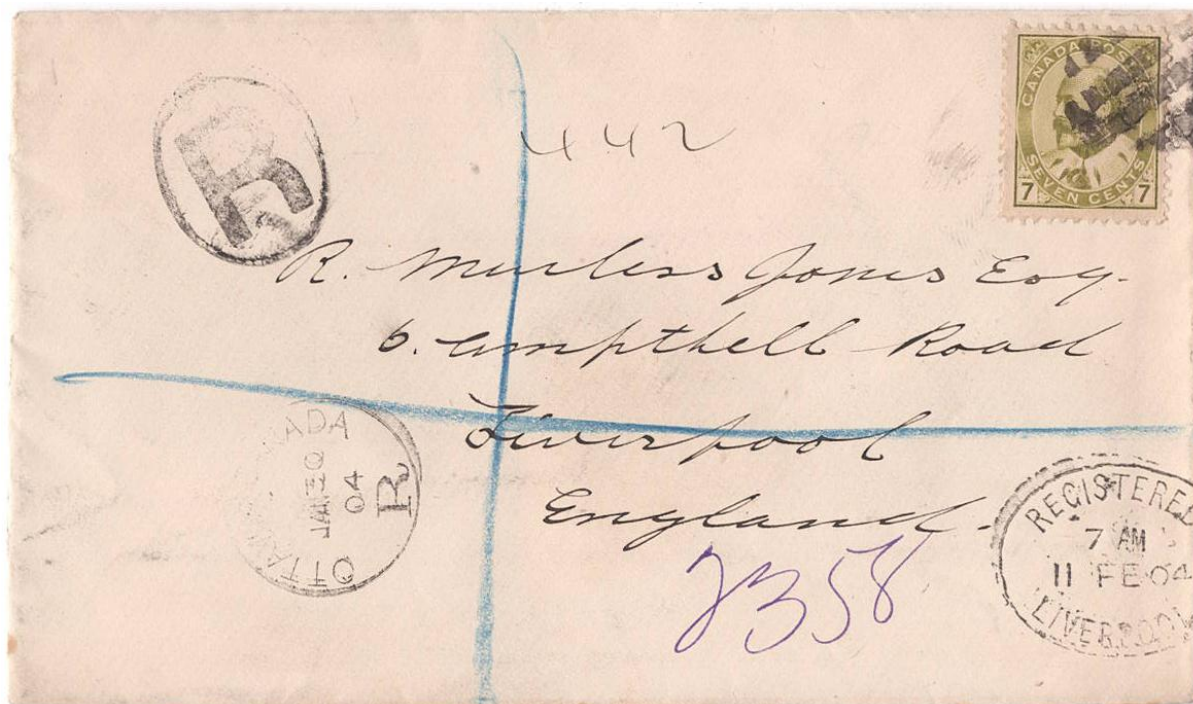 CANADA POSTAGE
SEVEN CENTS
7 7
R
442
R. Murless Jones Esq.
6. Ampthell Road
Liverpool
England.
OTTAWA CANADA
JAN 30
04
R
2358
REGISTERED
7 AM
11 FE 04
LIVERPOOL